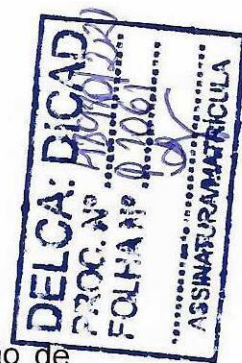 DELCA: DICAD
PROC. Nº
FOLHA Nº 01061
ASSINATURA/MATRÍCULA
de